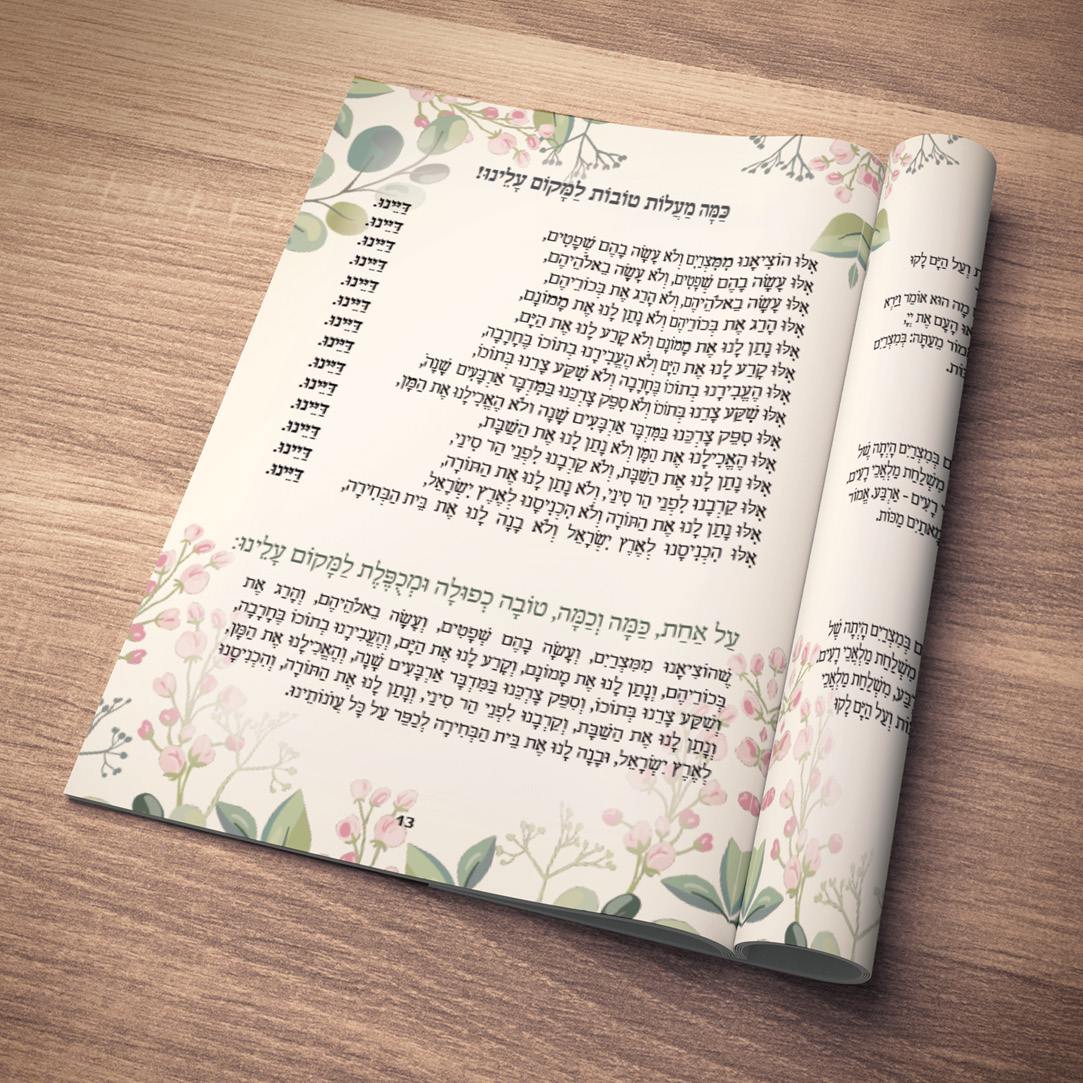 וְעַל הַיָּם לָקוּ
מָה הוּא אוֹמֵר וַיַּרְא
הָעָם אֶת יְיָ,
מֵעַתָּה: בְּמִצְרַיִם
בְּמִצְרַיִם הָיְתָה שֶׁל
מִשְׁלַחַת מַלְאֲכֵי רָעִים.
רָעִים - אַרְבַּע. אֱמוֹר
מָאתַיִם מַכּוֹת.
בְּמִצְרַיִם הָיְתָה שֶׁל
מִשְׁלַחַת מַלְאֲכֵי רָעִים,
מִשְׁלַחַת מַלְאֲכֵי
וְעַל הַיָּם לָקוּ
כַּמָּה מַעֲלוֹת טוֹבוֹת לַמָּקוֹם עָלֵינוּ!
אִלּוּ הוֹצִיאָנוּ מִמִּצְרַיִם וְלֹא עָשָׂה בָהֶם שְׁפָטִים, דַּיֵּינוּ.
אִלּוּ עָשָׂה בָהֶם שְׁפָטִים, וְלֹא עָשָׂה בֵאלֹהֵיהֶם, דַּיֵּינוּ.
אִלּוּ עָשָׂה בֵאלֹהֵיהֶם, וְלֹא הָרַג אֶת בְּכוֹרֵיהֶם, דַּיֵּינוּ.
אִלּוּ הָרַג אֶת בְּכוֹרֵיהֶם וְלֹא נָתַן לָנוּ אֶת מָמוֹנָם, דַּיֵּינוּ.
אִלּוּ נָתַן לָנוּ אֶת מָמוֹנָם וְלֹא קָרַע לָנוּ אֶת הַיָּם, דַּיֵּינוּ.
אִלּוּ קָרַע לָנוּ אֶת הַיָּם וְלֹא הֶעֱבִירָנוּ בְתוֹכוֹ בֶּחָרָבָה, דַּיֵּינוּ.
אִלּוּ הֶעֱבִירָנוּ בְתוֹכוֹ בֶּחָרָבָה וְלֹא שִׁקַּע צָרֵנוּ בְּתוֹכוֹ, דַּיֵּינוּ.
אִלּוּ שִׁקַּע צָרֵנוּ בְּתוֹכוֹ וְלֹא סִפֵּק צָרְכֵּנוּ בַּמִּדְבָּר אַרְבָּעִים שָׁנָה, דַּיֵּינוּ.
אִלּוּ סִפֵּק צָרְכֵּנוּ בַּמִּדְבָּר אַרְבָּעִים שָׁנָה וְלֹא הֶאֱכִילָנוּ אֶת הַמָּן, דַּיֵּינוּ.
אִלּוּ הֶאֱכִילָנוּ אֶת הַמָּן וְלֹא נָתַן לָנוּ אֶת הַשַּׁבָּת, דַּיֵּינוּ.
אִלּוּ נָתַן לָנוּ אֶת הַשַּׁבָּת, וְלֹא קֵרְבָנוּ לִפְנֵי הַר סִינַי, דַּיֵּינוּ.
אִלּוּ קֵרְבָנוּ לִפְנֵי הַר סִינַי, וְלֹא נָתַן לָנוּ אֶת הַתּוֹרָה, דַּיֵּינוּ.
אִלּוּ נָתַן לָנוּ אֶת הַתּוֹרָה וְלֹא הִכְנִיסָנוּ לְאֶרֶץ יִשְׂרָאֵל, דַּיֵּינוּ.
אִלּוּ הִכְנִיסָנוּ לְאֶרֶץ יִשְׂרָאֵל וְלֹא בָנָה לָנוּ אֶת בֵּית הַבְּחִירָה, דַּיֵּינוּ.
עַל אַחַת, כַּמָּה וְכַמָּה, טוֹבָה כְפוּלָה וּמְכֻפֶּלֶת לַמָּקוֹם עָלֵינוּ:
שֶׁהוֹצִיאָנוּ מִמִּצְרַיִם, וְעָשָׂה בָהֶם שְׁפָטִים, וְעָשָׂה בֵאלֹהֵיהֶם, וְהָרַג אֶת
בְּכוֹרֵיהֶם, וְנָתַן לָנוּ אֶת מָמוֹנָם, וְקָרַע לָנוּ אֶת הַיָּם, וְהֶעֱבִירָנוּ בְתוֹכוֹ בֶּחָרָבָה,
וְשִׁקַּע צָרֵנוּ בְּתוֹכוֹ, וְסִפֵּק צָרְכֵּנוּ בַּמִּדְבָּר אַרְבָּעִים שָׁנָה, וְהֶאֱכִילָנוּ אֶת הַמָּן,
וְנָתַן לָנוּ אֶת הַשַּׁבָּת, וְקֵרְבָנוּ לִפְנֵי הַר סִינַי, וְנָתַן לָנוּ אֶת הַתּוֹרָה, וְהִכְנִיסָנוּ
לְאֶרֶץ יִשְׂרָאֵל, וּבָנָה לָנוּ אֶת בֵּית הַבְּחִירָה לְכַפֵּר עַל כָּל עֲוֹנוֹתֵינוּ.
13